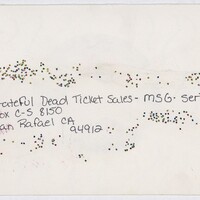 rateful Dead Ticket Sales - MSG - Ser
ox C-S 8150
an Rafael CA
94912